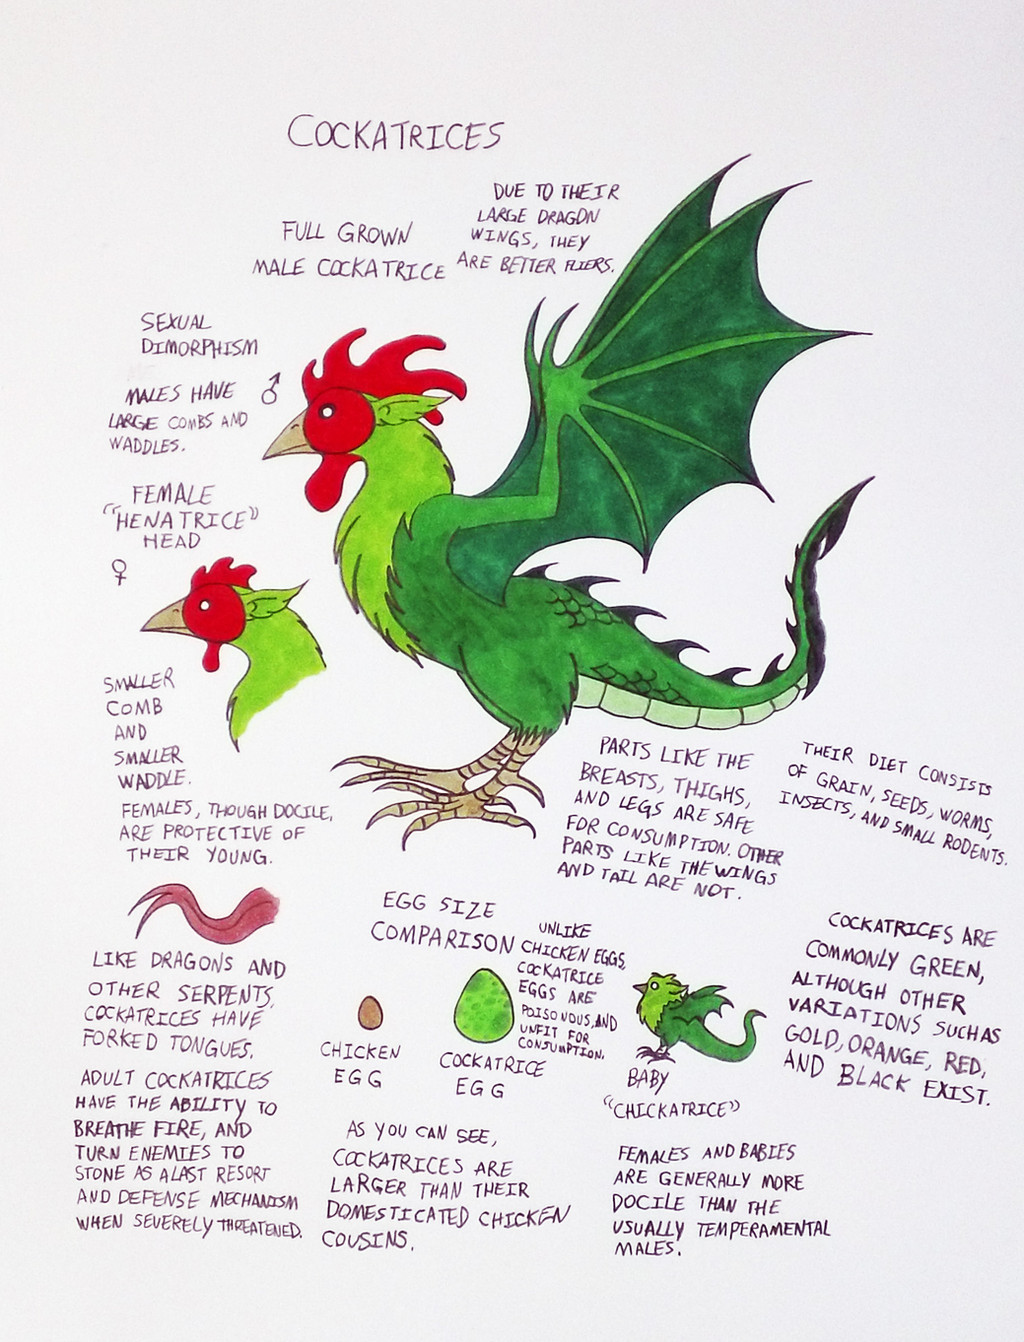 COCKATRICES
FULL GROWN
MALE COCKATRICE
DUE TO THEIR
LARGE DRAGON
WINGS, THEY
ARE BETTER FLIERS.
SEXUAL
DIMORPHISM
MALES HAVE ♂
LARGE COMBS AND
WADDLES.
FEMALE
"HENATRICE"
HEAD
♀
SMALLER
COMB
AND
SMALLER
WADDLE.
FEMALES, THOUGH DOCILE,
ARE PROTECTIVE OF
THEIR YOUNG.
PARTS LIKE THE
BREASTS, THIGHS,
AND LEGS ARE SAFE
FOR CONSUMPTION. OTHER
PARTS LIKE THE WINGS
AND TAIL ARE NOT.
THEIR DIET CONSISTS
OF GRAIN, SEEDS, WORMS,
INSECTS, AND SMALL RODENTS.
LIKE DRAGONS AND
OTHER SERPENTS,
COCKATRICES HAVE
FORKED TONGUES.
ADULT COCKATRICES
HAVE THE ABILITY TO
BREATHE FIRE, AND
TURN ENEMIES TO
STONE AS A LAST RESORT
AND DEFENSE MECHANISM
WHEN SEVERELY THREATENED.
EGG SIZE
COMPARISON
UNLIKE
CHICKEN EGGS,
COCKATRICE
EGGS ARE
POISONOUS, AND
UNFIT FOR
CONSUMPTION.
CHICKEN
EGG
COCKATRICE
EGG
AS YOU CAN SEE,
COCKATRICES ARE
LARGER THAN THEIR
DOMESTICATED CHICKEN
COUSINS.
BABY
"CHICKATRICE"
FEMALES AND BABIES
ARE GENERALLY MORE
DOCILE THAN THE
USUALLY TEMPERAMENTAL
MALES.
COCKATRICES ARE
COMMONLY GREEN,
ALTHOUGH OTHER
VARIATIONS SUCH AS
GOLD, ORANGE, RED,
AND BLACK EXIST.